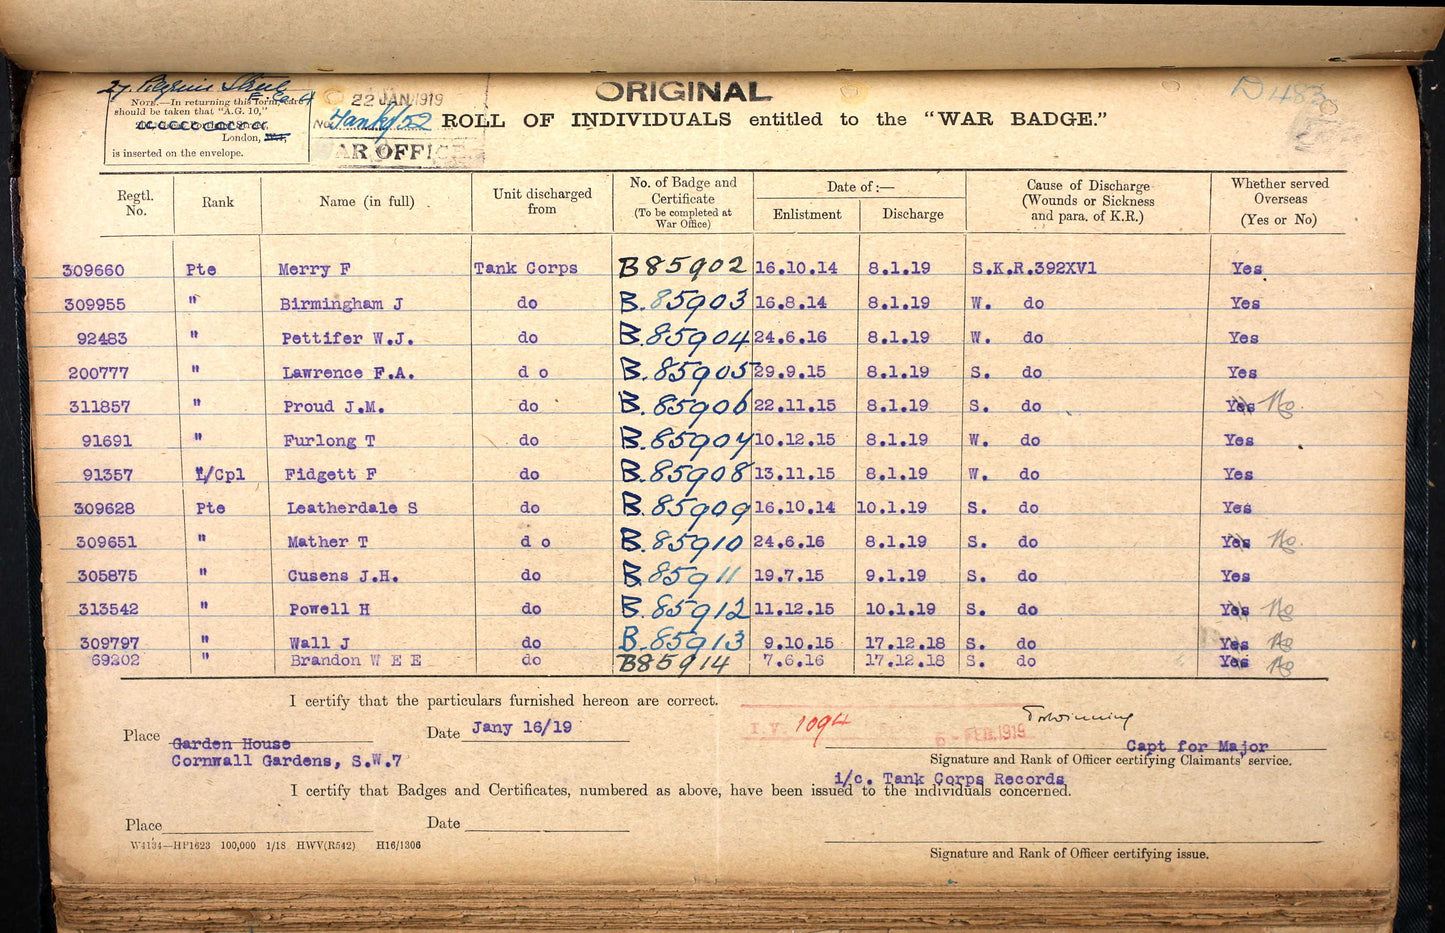 27. Pilgrim Street
E.C.4
NOTE.—In returning this form, care
should be taken that "A.G. 10,"
London, W.1,
is inserted on the envelope.
22 JAN 1919
No. Tanks/52
WAR OFFICE
ORIGINAL
D 483
ROLL OF INDIVIDUALS entitled to the "WAR BADGE."
Regtl. No. Rank Name (in full) Unit discharged from No. of Badge and Certificate (To be completed at War Office) Date of :— Enlistment Discharge Cause of Discharge (Wounds or Sickness and para. of K.R.) Whether served Overseas (Yes or No)
309660 Pte Merry F Tank Corps B85902 16.10.14 8.1.19 S.K.R.392XVI Yes
309955 " Birmingham J do B.85903 16.8.14 8.1.19 W. do Yes
92483 " Pettifer W.J. do B.85904 24.6.16 8.1.19 W. do Yes
200777 " Lawrence F.A. d o B.85905 29.9.15 8.1.19 S. do Yes
311857 " Proud J.M. do B.85906 22.11.15 8.1.19 S. do Yes No.
91691 " Furlong T do B.85907 10.12.15 8.1.19 W. do Yes
91357 L/Cpl Fidgett F do B.85908 13.11.15 8.1.19 W. do Yes
309628 Pte Leatherdale S do B.85909 16.10.14 10.1.19 S. do Yes
309651 " Mather T d o B.85910 24.6.16 8.1.19 S. do Yes No.
305875 " Cusens J.H. do B.85911 19.7.15 9.1.19 S. do Yes
313542 " Powell H do B.85912 11.12.15 10.1.19 S. do Yes No
309797 " Wall J do B.85913 9.10.15 17.12.18 S. do Yes No
69202 " Brandon W E E do B85914 7.6.16 17.12.18 S. do Yes No
I certify that the particulars furnished hereon are correct.
Place Garden House
Cornwall Gardens, S.W.7
Date Jany 16/19
I.V. 1094
5 - FEB. 1919
Capt for Major
Signature and Rank of Officer certifying Claimants' service.
i/c. Tank Corps Records
I certify that Badges and Certificates, numbered as above, have been issued to the individuals concerned.
Place Date
W4134—HP1623 100,000 1/18 HWV(R542) H16/1306
Signature and Rank of Officer certifying issue.